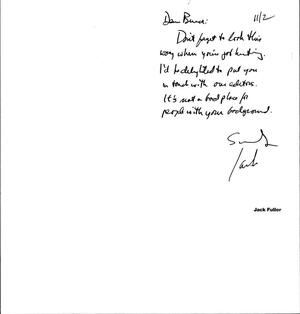 11/2
Dear Bruce:
Don't forget to look this
way when you're job hunting.
I'd be delighted to put you
in touch with our editors.
It's not a bad place for
people with your background.
Jack
Jack Fuller